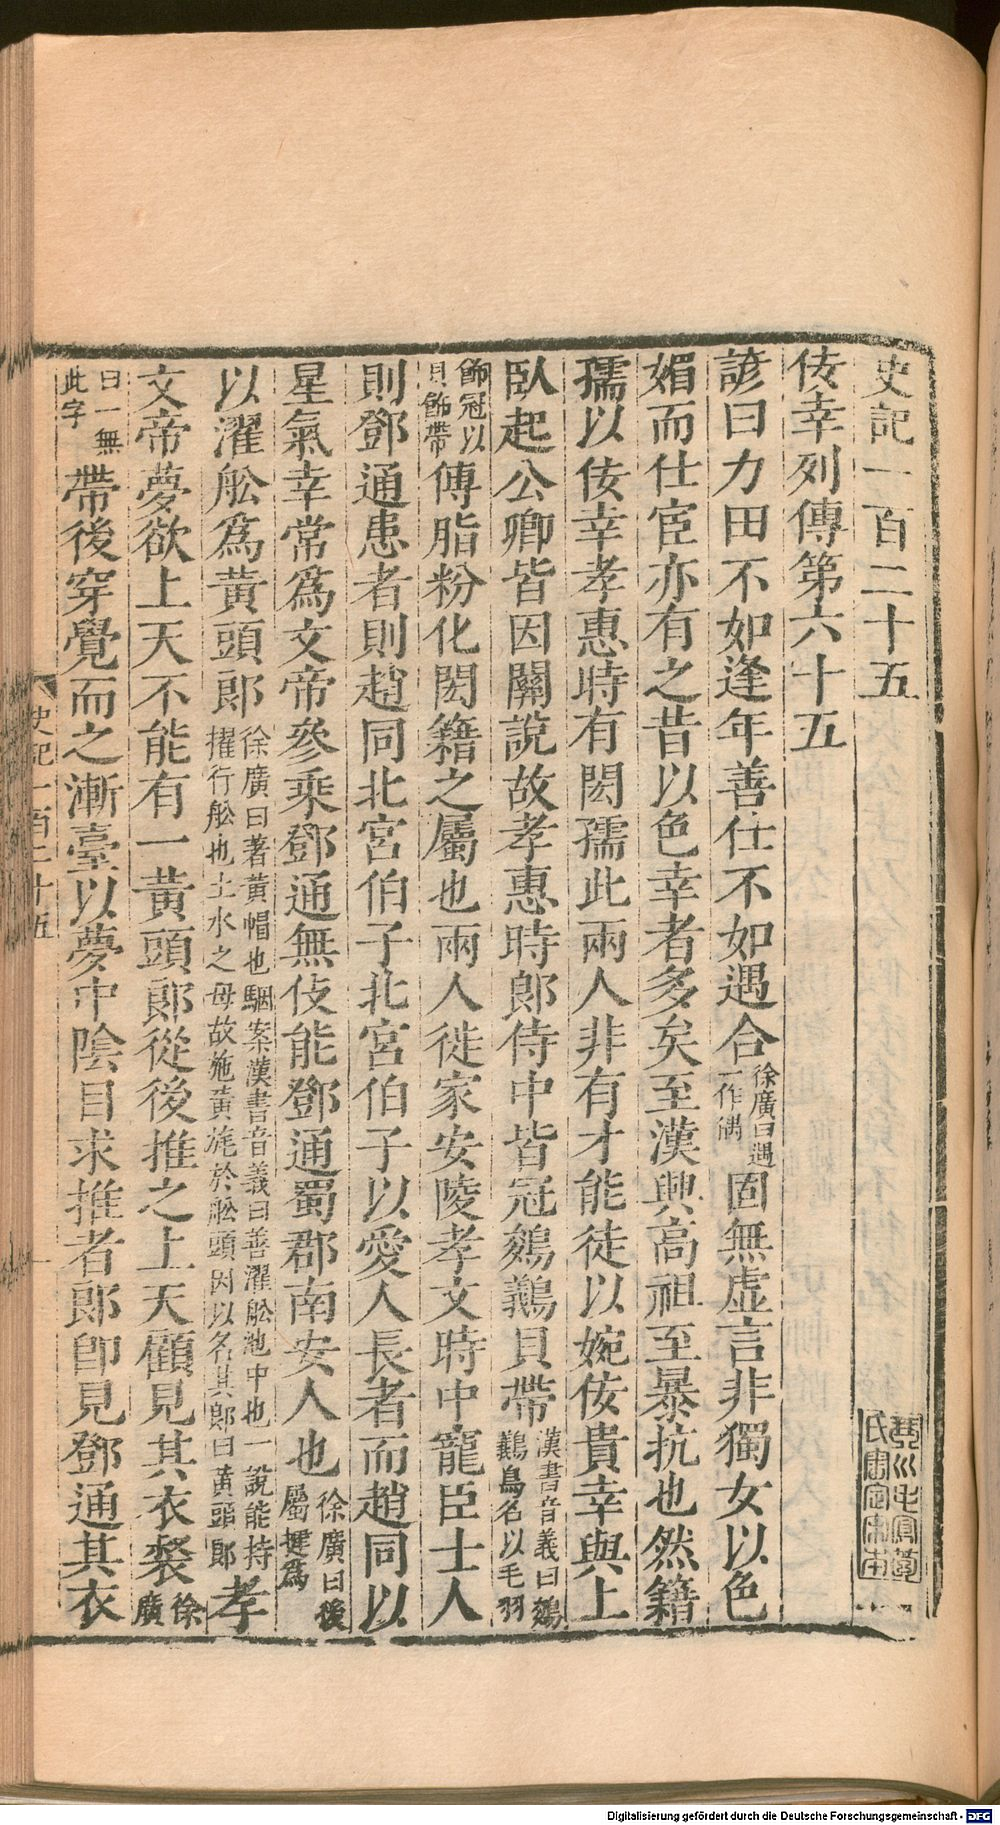 史記一百二十五
佞幸列傳第六十五
諺曰力田不如逢年善仕不如遇合徐廣曰遇一作偶固無虛言非獨女以色
媚而仕宦亦有之昔以色幸者多矣至漢興高祖至暴抗也然籍
孺以佞幸孝惠時有閎孺此兩人非有才能徒以婉佞貴幸與上
臥起公卿皆因關說故孝惠時郎侍中皆冠鵕鸃貝帶漢書音義曰鵕鸃鳥名以毛羽
飾冠以貝飾帶傅脂粉化閎籍之屬也兩人徙家安陵孝文時中寵臣士人
則鄧通患者則趙同北宮伯子北宮伯子以愛人長者而趙同以
星氣幸常為文帝參乘鄧通無伎能鄧通蜀郡南安人也徐廣曰後屬犍為
以濯舩為黃頭郎徐廣曰著黃帽也駰案漢書音義曰善濯舩池中也一說能持擢行舩也土水之母故施黃旄於舩頭因以名其郎曰黃頭郎孝
文帝夢欲上天不能有一黃頭郎從後推之上天顧見其衣裻徐廣
曰一無此字帶後穿覺而之漸臺以夢中陰目求推者郎即見鄧通其衣
史記一百二十五
一
琴川毛鳳苞氏審定宋本
Digitalisierung gefördert durch die Deutsche Forschungsgemeinschaft - DFG